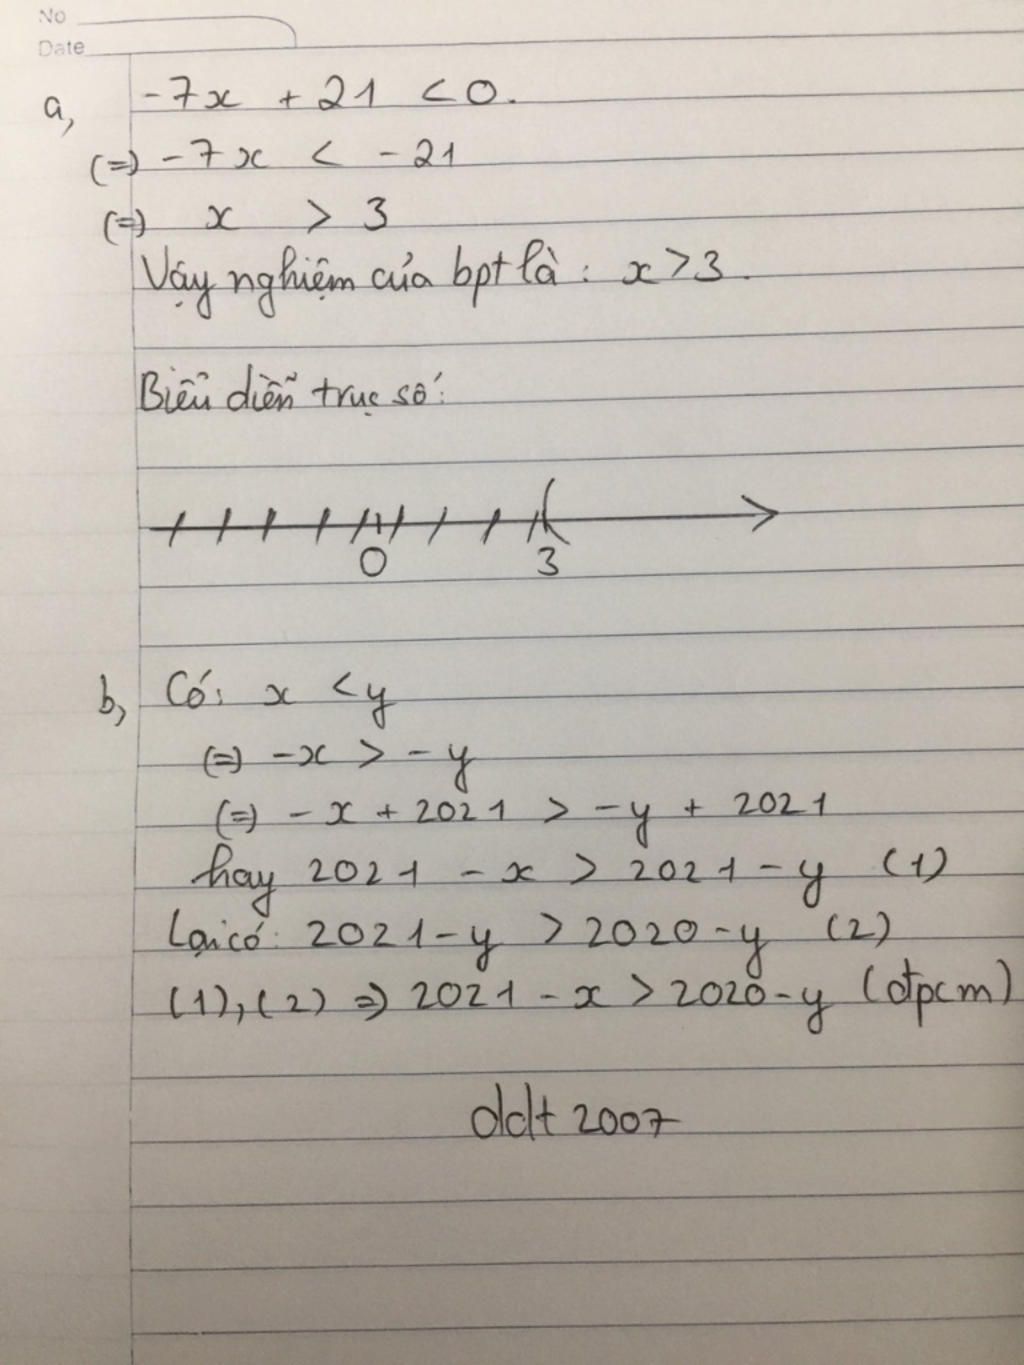 No
Date
a, -7x + 21 < 0.
(=) -7x < -21
(=) x > 3
Vậy nghiệm của bpt là: x > 3.
Biểu diễn trục số:
0 3
b, Có: x < y
(=) -x > -y
(=) -x + 2021 > -y + 2021
hay 2021 - x > 2021 - y (1)
Lại có: 2021 - y > 2020 - y (2)
(1), (2) => 2021 - x > 2020 - y (đpcm)
ddt 2007